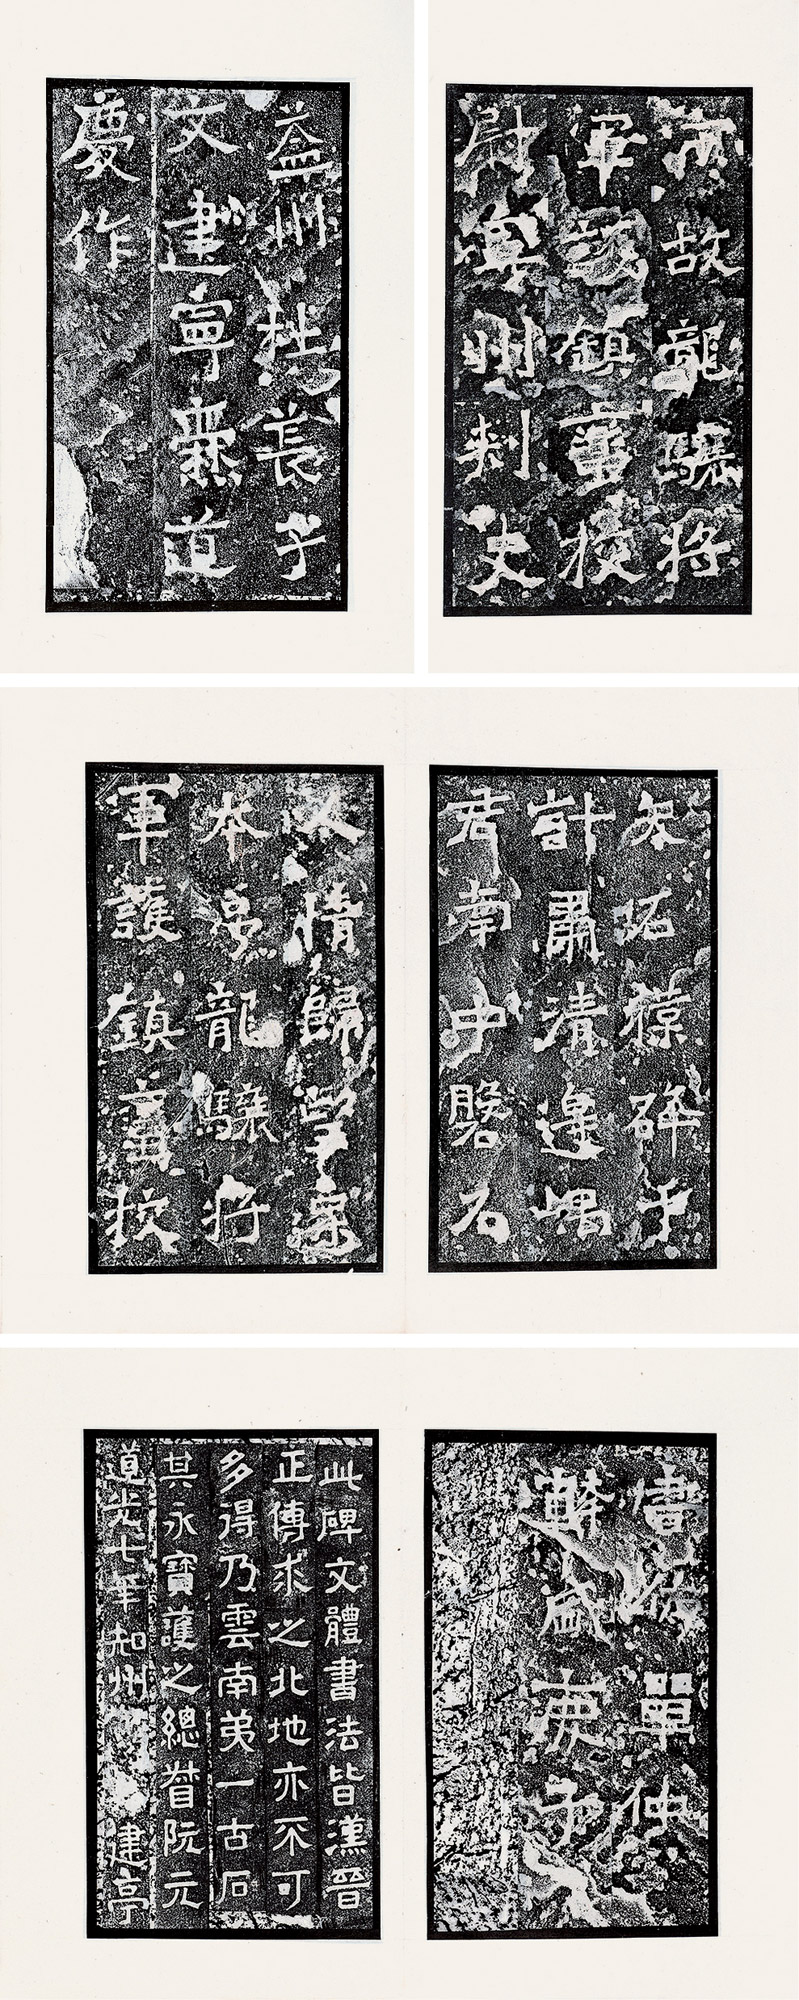 宋故龍驤將
軍護鎮蠻校
尉寧州刺史
益州杜萇子
文建寧爨道
慶作
矢石撲碎千
計肅清邊嵎
君南中磐石
人情歸望遷
本号龍驤將
軍護鎮蠻校
書佐單仲
幹盛庚子
此碑文體書法皆漢晉
正傳求之北地亦不可
多得乃雲南第一古石
其永寶護之總督阮元
道光七年知州 建亭